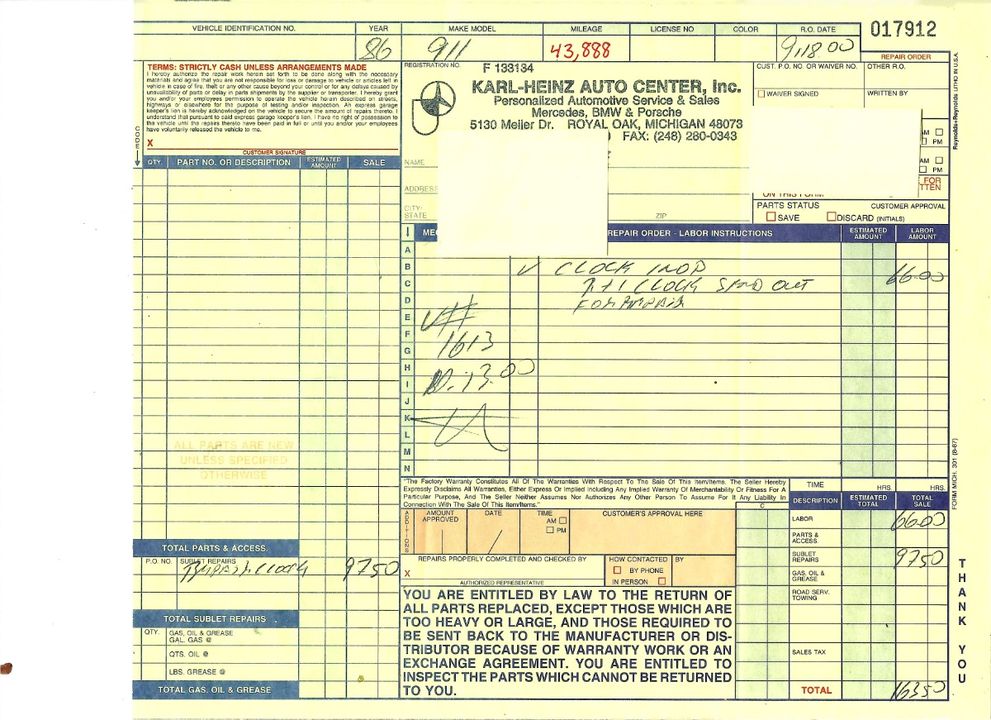 VEHICLE IDENTIFICATION NO. YEAR MAKE MODEL MILEAGE LICENSE NO COLOR R.O. DATE 017912
86 911 43,888 9.18 00
REPAIR ORDER
TERMS: STRICTLY CASH UNLESS ARRANGEMENTS MADE
I hereby authorize the repair work herein set forth to be done along with the necessary
materials and agree that you are not responsible for loss or damage to vehicle or articles left in
vehicle in case of fire, theft or any other cause beyond your control or for any delays caused by
unavailability of parts or delay in parts shipments by the supplier or transporter. I hereby grant
you and/or your employees permission to operate the vehicle herein described on streets,
highways or elsewhere for the purpose of testing and/or inspection. An express garage
keeper's lien is hereby acknowledged on the vehicle to secure the amount of repairs thereto. I
understand that pursuant to said express garage keeper's lien, I have no right of possession to
the vehicle until the repairs thereto have been paid in full or until you and/or your employees
have voluntarily released the vehicle to me.
X
CUSTOMER SIGNATURE
CODE
REGISTRATION NO. F 133134
KARL-HEINZ AUTO CENTER, Inc.
Personalized Automotive Service & Sales
Mercedes, BMW & Porsche
5130 Meijer Dr. ROYAL OAK, MICHIGAN 48073
FAX: (248) 280-0343
CUST. P.O. NO. OR WAIVER NO. OTHER R.O.
WAIVER SIGNED WRITTEN BY
AM
PM
AM
PM
FOR
TTEN
ON THIS FORM
PARTS STATUS CUSTOMER APPROVAL
SAVE DISCARD (INITIALS)
Reynolds+Reynolds LITHO IN U.S.A.
NAME
ADDRESS
CITY-
STATE ZIP
QTY. PART NO. OR DESCRIPTION ESTIMATED AMOUNT SALE
ALL PARTS ARE NEW
UNLESS SPECIFIED
OTHERWISE
I MEC REPAIR ORDER - LABOR INSTRUCTIONS ESTIMATED AMOUNT LABOR AMOUNT
A
B CLOCK INOP 66.00
C R+I CLOCK SEND OUT
D FOR REPAIR
E
F
G 1613
H
I
J
K
L
M
N
"The Factory Warranty Constitutes All Of The Warranties With Respect To The Sale Of This Item/Items. The Seller Hereby
Expressly Disclaims All Warranties, Either Express Or Implied Including Any Implied Warranty Of Merchantability Or Fitness For A
Particular Purpose, And The Seller Neither Assumes Nor Authorizes Any Other Person To Assume For It Any Liability In
Connection With The Sale Of This Item/Items."
FORM MICH. 301 (8-87)
ADDITIONS
AMOUNT APPROVED DATE TIME AM PM CUSTOMER'S APPROVAL HERE
REPAIRS PROPERLY COMPLETED AND CHECKED BY HOW CONTACTED BY
X BY PHONE
AUTHORIZED REPRESENTATIVE IN PERSON
TOTAL PARTS & ACCESS.
P.O. NO. SUBLET REPAIRS
REPAIR CLOCK 97 50
TOTAL SUBLET REPAIRS
QTY. GAS, OIL & GREASE
GAL. GAS @
QTS. OIL @
LBS. GREASE @
TOTAL GAS, OIL & GREASE
YOU ARE ENTITLED BY LAW TO THE RETURN OF
ALL PARTS REPLACED, EXCEPT THOSE WHICH ARE
TOO HEAVY OR LARGE, AND THOSE REQUIRED TO
BE SENT BACK TO THE MANUFACTURER OR DIS-
TRIBUTOR BECAUSE OF WARRANTY WORK OR AN
EXCHANGE AGREEMENT. YOU ARE ENTITLED TO
INSPECT THE PARTS WHICH CANNOT BE RETURNED
TO YOU.
C
TIME HRS. HRS.
DESCRIPTION ESTIMATED TOTAL TOTAL SALE
LABOR 66.00
PARTS & ACCESS.
SUBLET REPAIRS 97 50
GAS, OIL & GREASE
ROAD SERV. TOWING
SALES TAX
TOTAL 163 50
THANK YOU